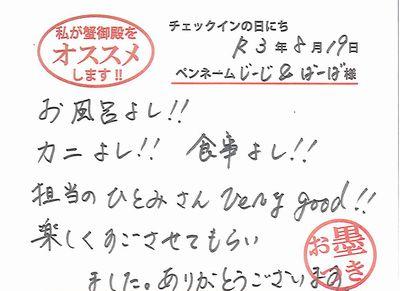 私が蟹御殿を
オススメ
します!!
チェックインの日にち
R3年8月19日
ペンネームじーじ&ばーば様
お風呂よし!!
カニよし!! 食事よし!!
担当のひとみさん Very good!!
楽しくすごさせてもらい
ました。ありがとうございます。
お墨つき